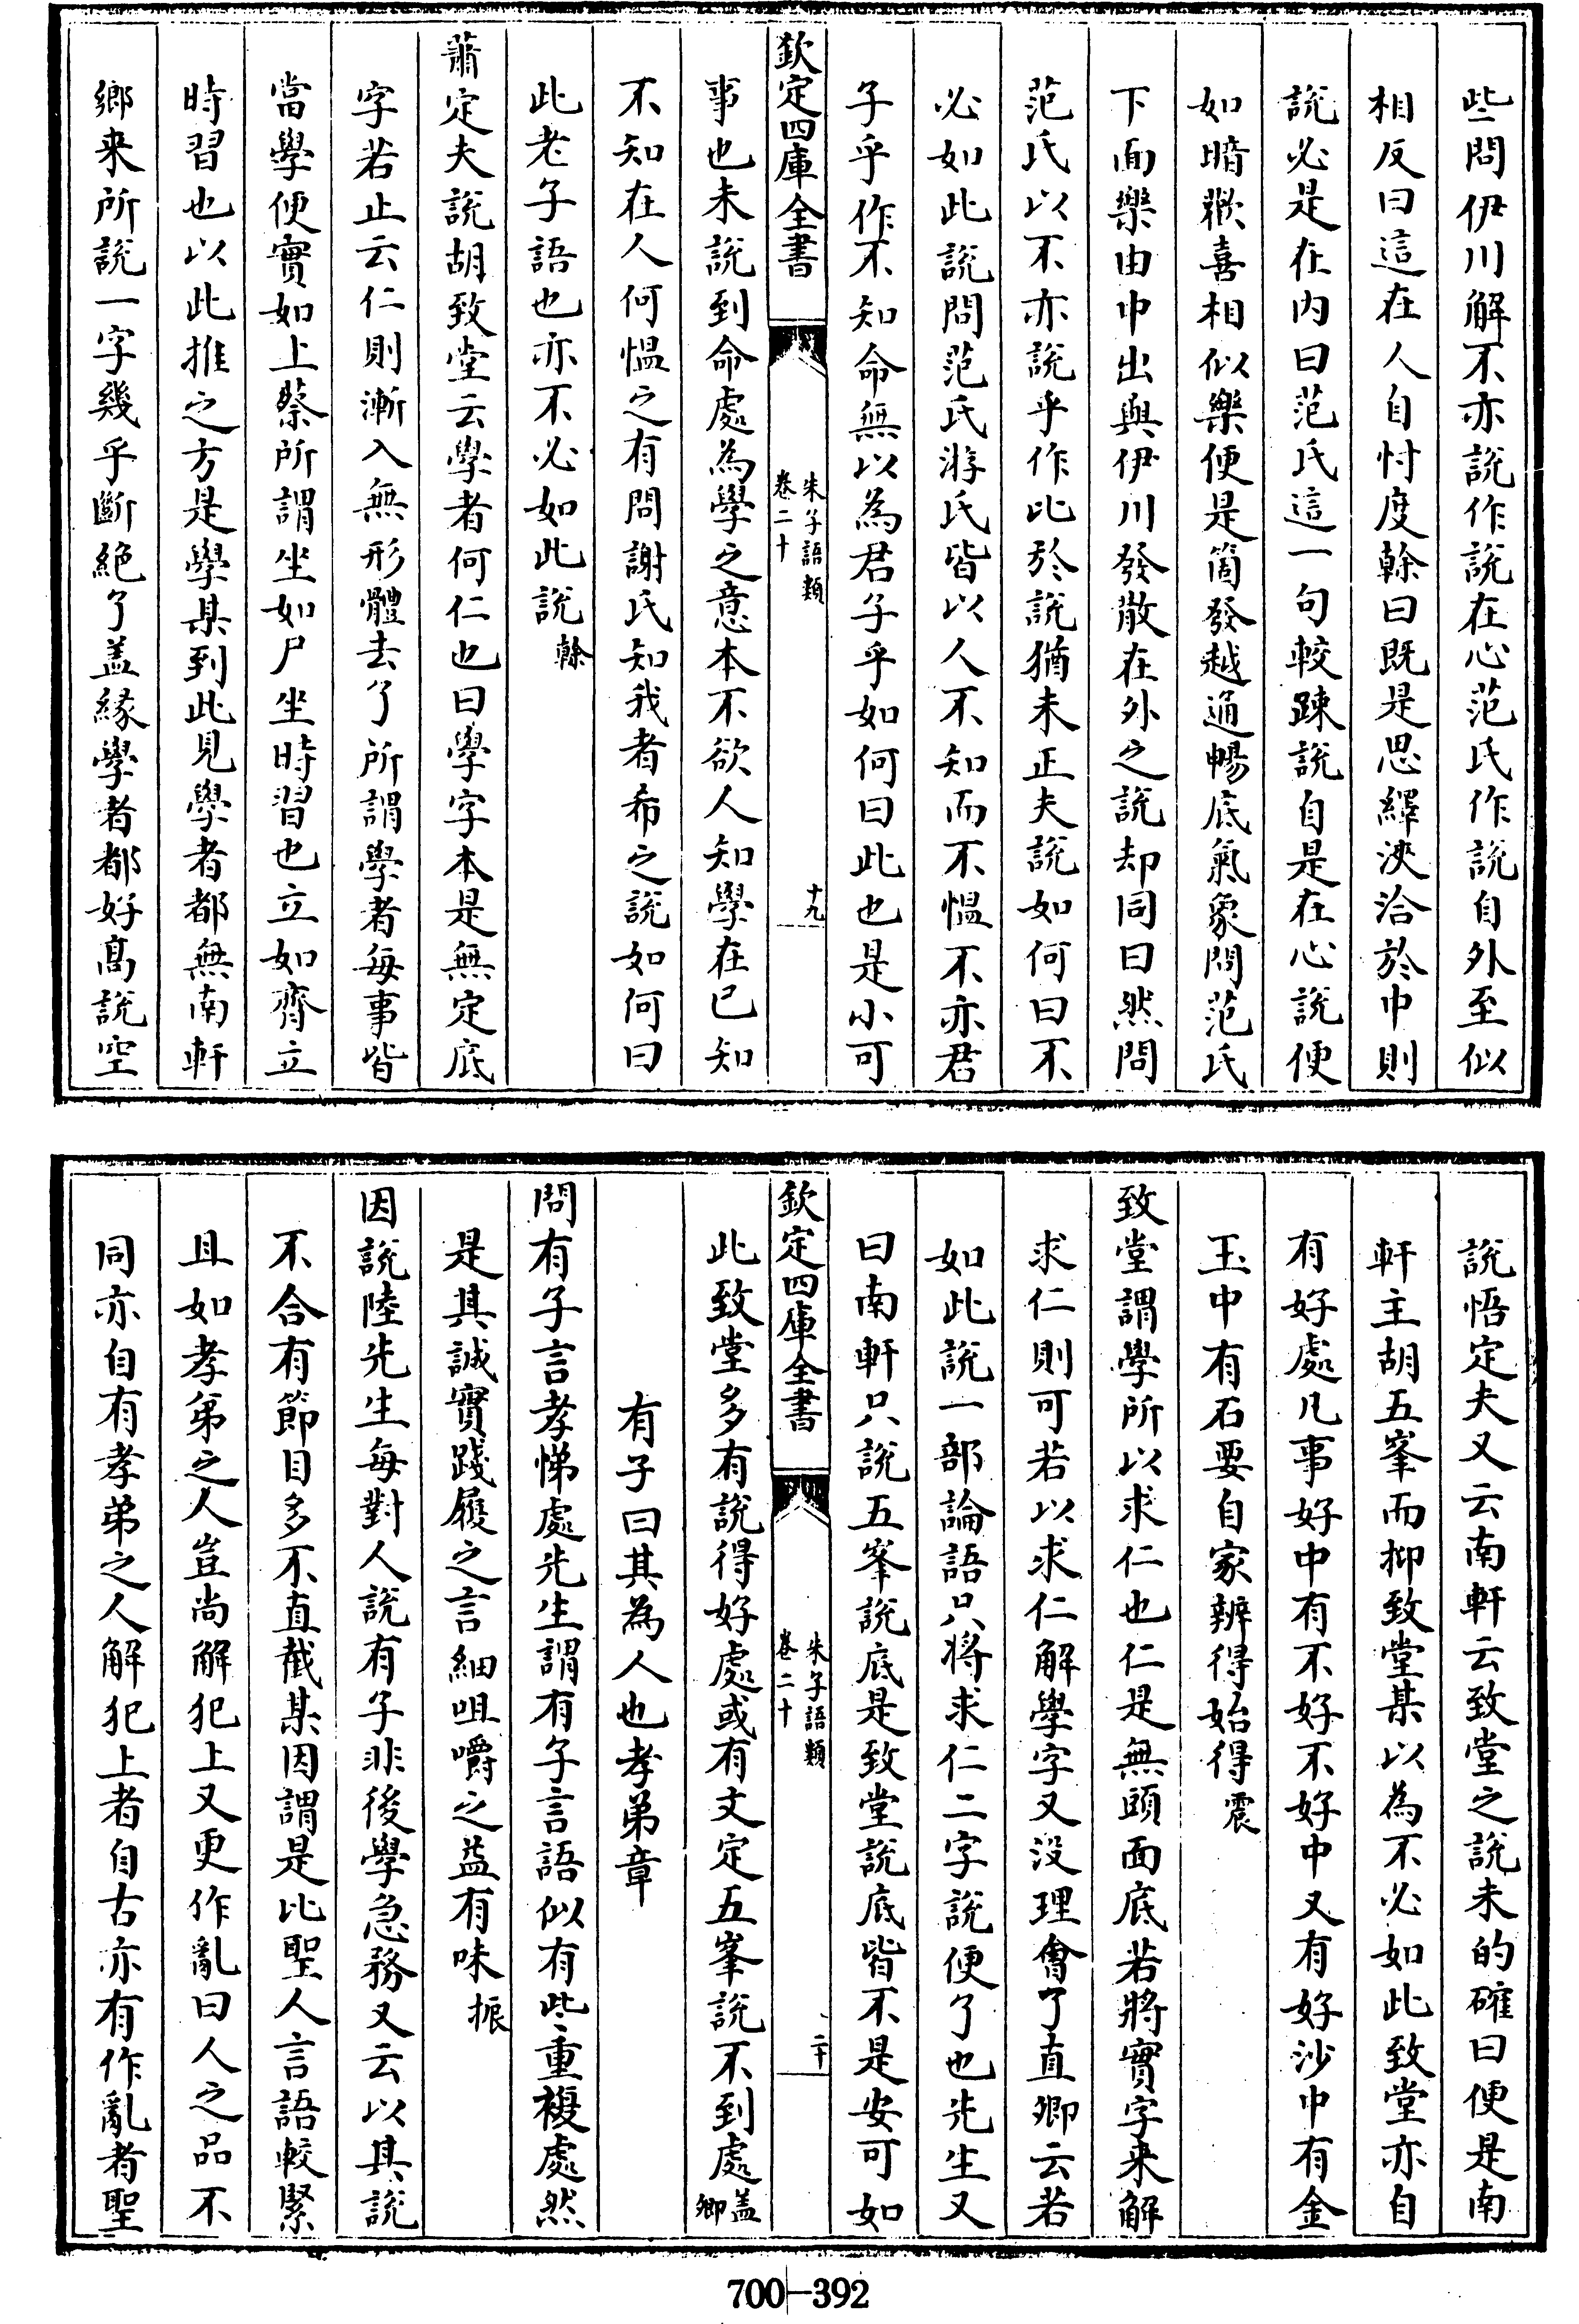 些問伊川解不亦說作說在心范氏作說自外至似
相反曰這在人自忖度榦曰既是思繹浹洽於中則
說必是在内曰范氏這一句較踈說自是在心說便
如暗歡喜相似樂便是箇發越通暢底氣象問范氏
下面樂由中出與伊川發散在外之說却同曰然問
范氏以不亦說乎作比於說猶未正夫說如何曰不
必如此說問范氏游氏皆以人不知而不愠不亦君
子乎作不知命無以為君子乎如何曰此也是小可
欽定四庫全書
朱子語類
卷二十
十九
事也未說到命處為學之意本不欲人知學在己知
不知在人何愠之有問謝氏知我者希之說如何曰
此老子語也亦不必如此說榦
蕭定夫說胡致堂云學者何仁也曰學字本是無定底
字若止云仁則漸入無形體去了所謂學者每事皆
當學便實如上蔡所謂坐如尸坐時習也立如齊立
時習也以此推之方是學某到此見學者都無南軒
鄉来所說一字幾乎斷絶了盖緣學者都好髙說空
說悟定夫又云南軒云致堂之說未的確曰便是南
軒主胡五峯而抑致堂某以為不必如此致堂亦自
有好處凡事好中有不好不好中又有好沙中有金
玉中有石要自家辨得始得震
致堂謂學所以求仁也仁是無頭面底若將實字来解
求仁則可若以求仁解學字又没理會了直卿云若
如此說一部論語只将求仁二字說便了也先生又
曰南軒只說五峯說底是致堂說底皆不是安可如
欽定四庫全書
朱子語類
卷二十
二十
此致堂多有說得好處或有文定五峯說不到處盖卿
有子曰其為人也孝弟章
問有子言孝悌處先生謂有子言語似有些重複處然
是其誠實踐履之言細咀嚼之益有味振
因說陸先生每對人說有子非後學急務又云以其說
不合有節目多不直截某因謂是比聖人言語較緊
且如孝弟之人豈尚解犯上又更作亂曰人之品不
同亦自有孝弟之人解犯上者自古亦有作亂者聖
700-392